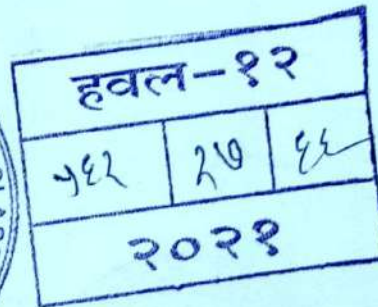 हवल-१२
५६२ २७ ६६
२०२१